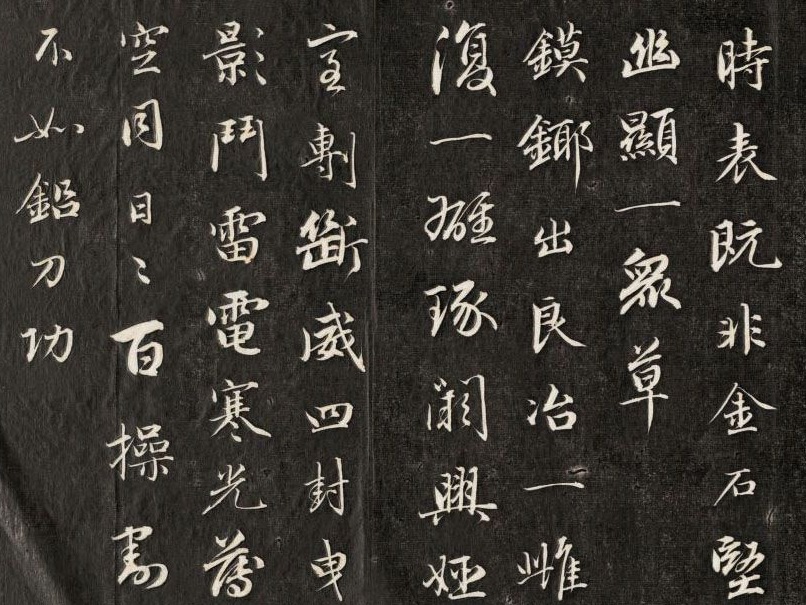 時表既非金石堅
幽顯一衆草
鏌鎁出良冶一雌
復一雄琢闕興
室剸斷威四封曳
影鬥雷電寒光薄
空同日日百操割
不如鉛刀功